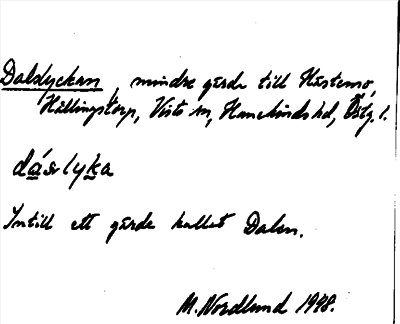 Dalslyckan, mindre gärde till Hästemo,
Hällingstorp, Vists sn, Hanekinds hd, Östg. l.
dásslyka
Intill ett gärde kallat Dalen.
M. Nordlund 1948.